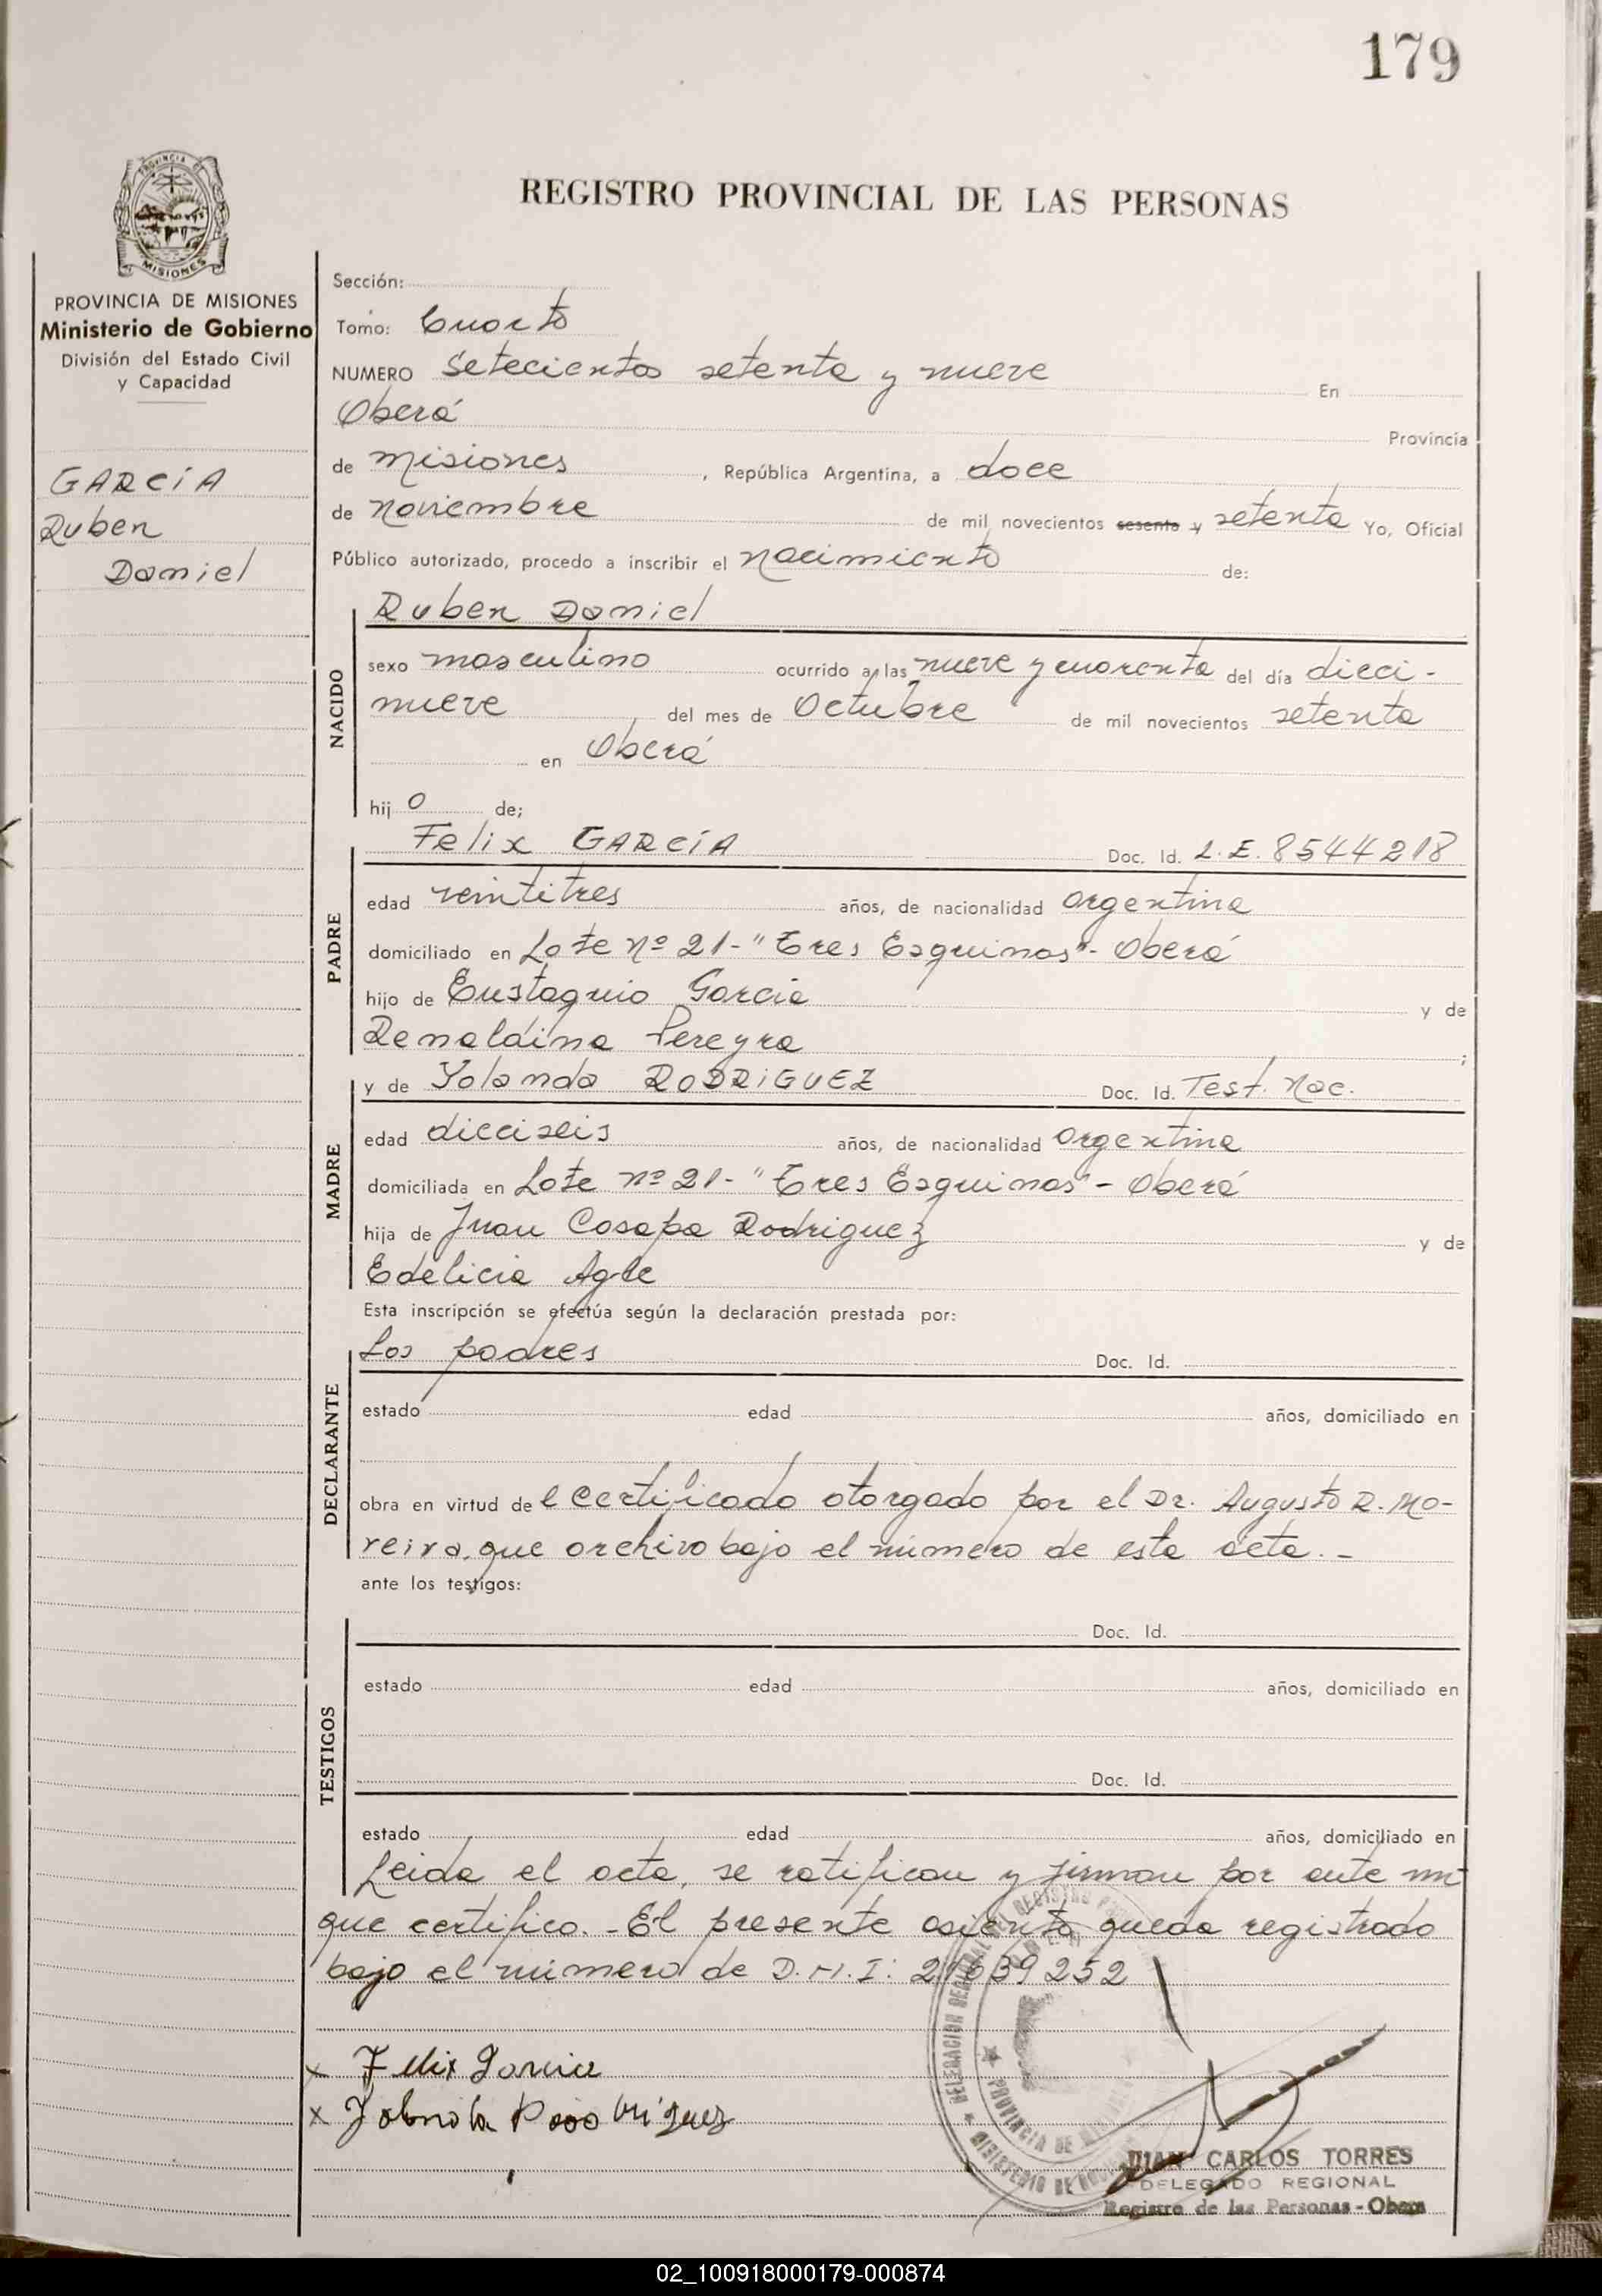 179
REGISTRO PROVINCIAL DE LAS PERSONAS
PROVINCIA DE MISIONES
Ministerio de Gobierno
División del Estado Civil
y Capacidad
GARCÍA
Ruben
Daniel
Sección:
Tomo: Cuarto
NUMERO Setecientos setenta y nueve En
Oberá Provincia
de Misiones, República Argentina, a doce
de Noviembre de mil novecientos sesenta y setenta Yo, Oficial
Público autorizado, procedo a inscribir el Nacimiento de:
NACIDO
Ruben Daniel
sexo masculino ocurrido a las nueve y cuarenta del día dieci-
nueve del mes de Octubre de mil novecientos setenta
en Oberá
hijo de;
PADRE
Felix GARCÍA Doc. Id. L.E. 8544218
edad veintitres años, de nacionalidad argentina
domiciliado en Lote Nº 21-"Tres Esquinas"- Oberá
hijo de Eustaquio Garcia y de
Renaldina Pereyra ;
MADRE
y de Yolanda RODRIGUEZ Doc. Id. Test. Nac.
edad dieciseis años, de nacionalidad argentina
domiciliada en Lote nº 21-"Tres Esquinas"- Oberá
hija de Juan Cosapa Rodriguez y de
Edelicia Agte
Esta inscripción se efectúa según la declaración prestada por:
DECLARANTE
Los padres Doc. Id.
estado edad años, domiciliado en
obra en virtud del certificado otorgado por el Dr. Augusto R. Mo-
reira, que archivo bajo el número de esta acta.-
ante los testigos:
TESTIGOS
Doc. Id.
estado edad años, domiciliado en
Doc. Id.
estado edad años, domiciliado en
Leida el acta, se ratifican y firman por ante mi
que certifico.-El presente asiento queda registrado
bajo el número de D.N.I: 21639252
x Felix Garcia
x Yolanda Rodriguez
JUAN CARLOS TORRES
DELEGADO REGIONAL
Registro de las Personas - Obera
02_100918000179-000874